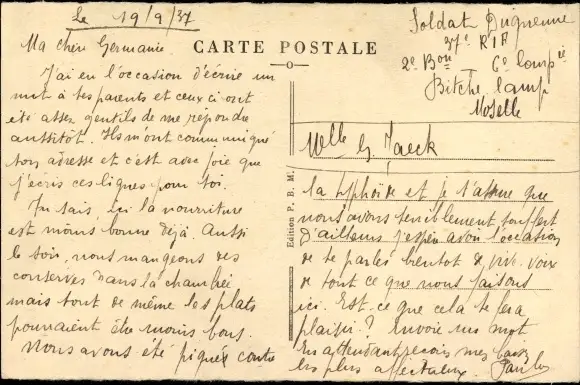 Le 19/9/37
Ma chère Germanie.
CARTE POSTALE
Soldat Duquenne
37e R I F
2e Bon 6e Compie
Bitche Camp
Moselle
J'ai eu l'occasion d'écrire un
mot à tes parents et ceux ci ont
été assez gentils de me repondre
aussitôt. Ils m'ont communiqué
ton adresse et c'est avec joie que
j'écris ces lignes pour toi.
Tu sais, ici la nourriture
est moins bonne déjà. Aussi
le soir, nous mangeons des
conserves dans la chambrée
mais tout de même les plats
pourraient être moins bons.
Nous avons été piqués contre
Edition P. B. M.
Melle G. Jaeck
la typhoïde et je t'assure que
nous avons terriblement souffert
D'ailleurs j'espère avoir l'occasion
de te parler bientot de vive voix
de tout ce que nous faisons
ici. Est-ce que cela te fera
plaisir? Envoie un mot
En attendant recois mes
les plus affectueux.